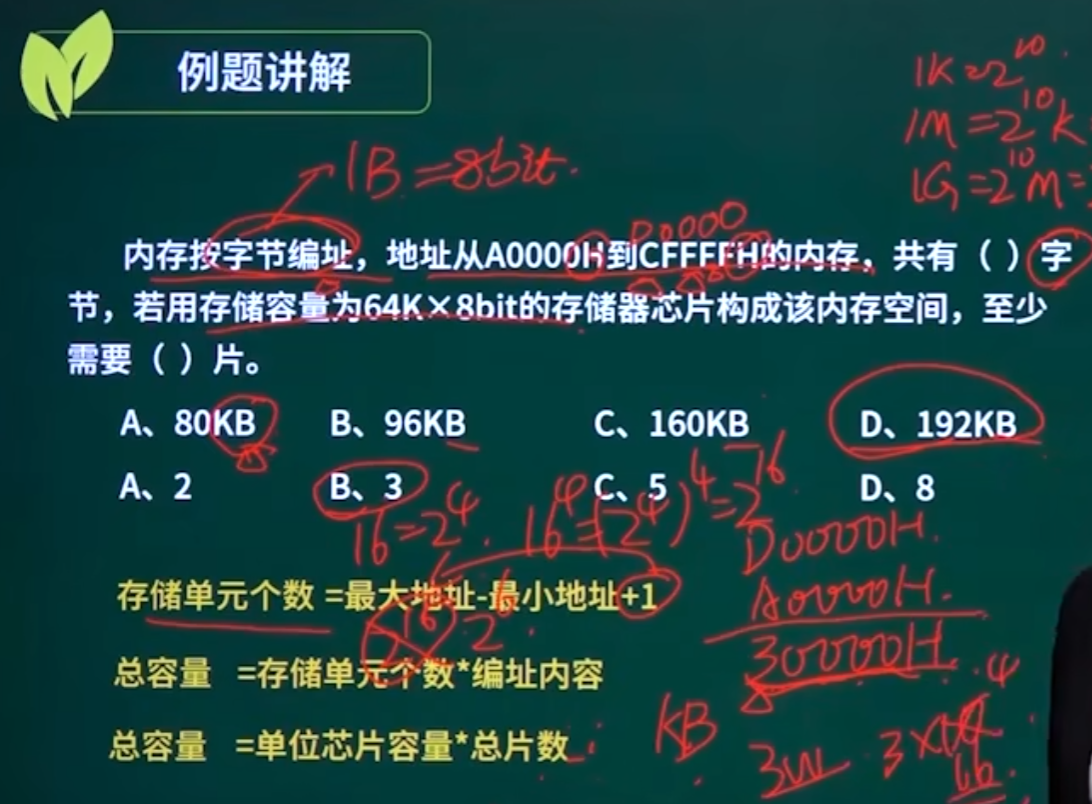 例题讲解
1K=2^10
1M=2^10K
1G=2^10M=
1B=8bit.
D0000
内存按字节编址，地址从A0000H到CFFFFH的内存，共有（ ）字
节，若用存储容量为64K×8bit的存储器芯片构成该内存空间，至少
需要（ ）片。
A、80KB B、96KB C、160KB D、192KB
A、2 B、3 C、5 D、8
16=2^4. 16^4=(2^4)^4=2^16
D0000H.
存储单元个数 =最大地址-最小地址+1
A0000H.
2^16 2^6
30000H
总容量 =存储单元个数*编址内容
总容量 =单位芯片容量*总片数
KB
3W 3×16^4